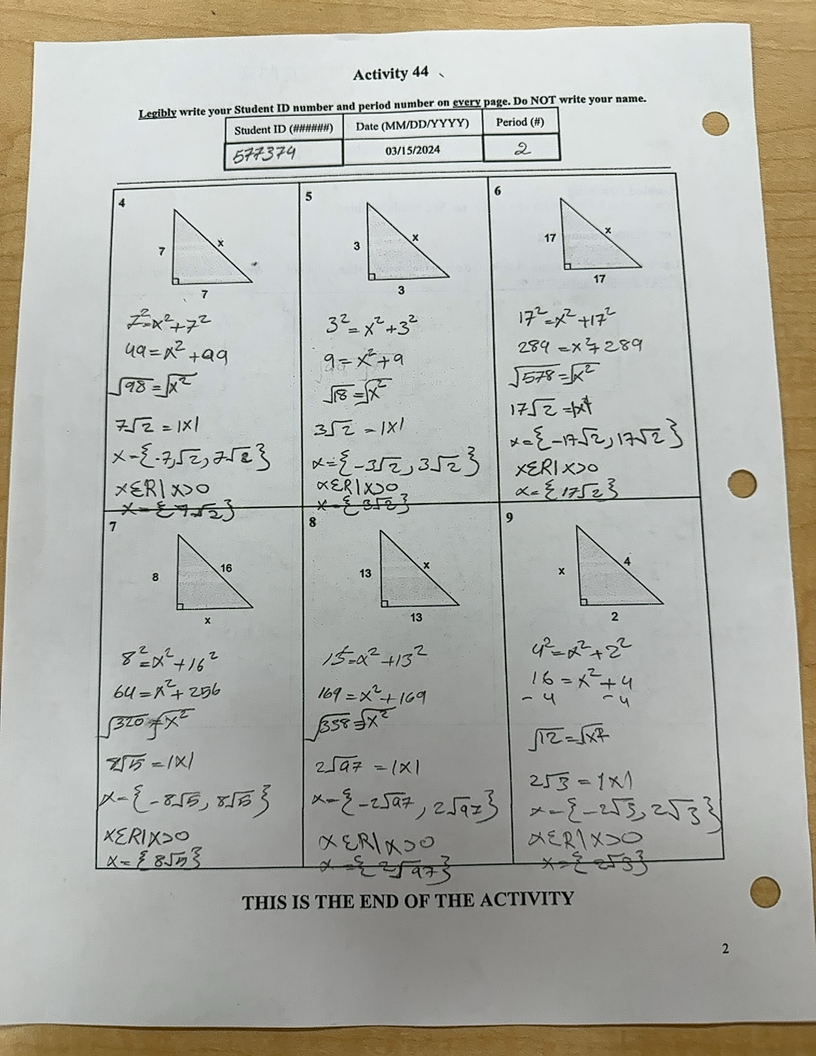 Activity 44
Legibly write your Student ID number and period number on every page. Do NOT write your name.
Student ID (######) Date (MM/DD/YYYY) Period (#)
577374 03/15/2024 2
4
7
x
7
7²=x²+7²
49=x²+49
√98=√x²
7√2=|x|
x={-7√2, 7√2}
xεR|x>0
x={7√2}
5
3
x
3
3²=x²+3²
9=x²+9
√18=√x²
3√2=|x|
x={-3√2, 3√2}
xεR|x>0
x={3√2}
6
17
x
17
17²=x²+17²
289=x²+289
√578=√x²
17√2=|x|
x={-17√2, 17√2}
xεR|x>0
x={17√2}
7
8
16
x
8²=x²+16²
64=x²+256
√320=√x²
8√5=|x|
x={-8√5, 8√5}
xεR|x>0
x={8√5}
8
13
x
13
=x²+13²
169=x²+169
√338=√x²
2√97=|x|
x={-2√97, 2√97}
xεR|x>0
x={2√97}
9
x
4
2
4²=x²+2²
16=x²+4
-4 -4
√12=√x²
2√3=|x|
x={-2√3, 2√3}
xεR|x>0
x={2√3}
THIS IS THE END OF THE ACTIVITY
2